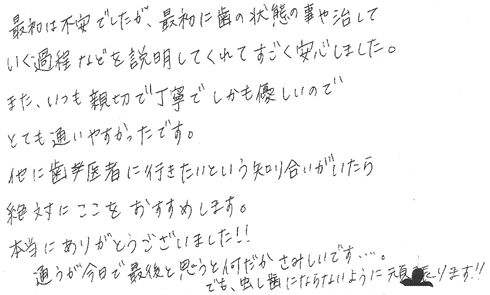 最初は不安でしたが、最初に歯の状態の事や治して
いく過程などを説明してくれてすごく安心しました。
また、いつも親切で丁寧でしかも優しいので
とても通いやすかったです。
他に歯医者に行きたいという知り合いがいたら
絶対にここをおすすめします。
本当にありがとうございました!!
通うが今日で最後と思うと何だかさみしいです…。
でも、虫し歯にならないように頑張ります!!